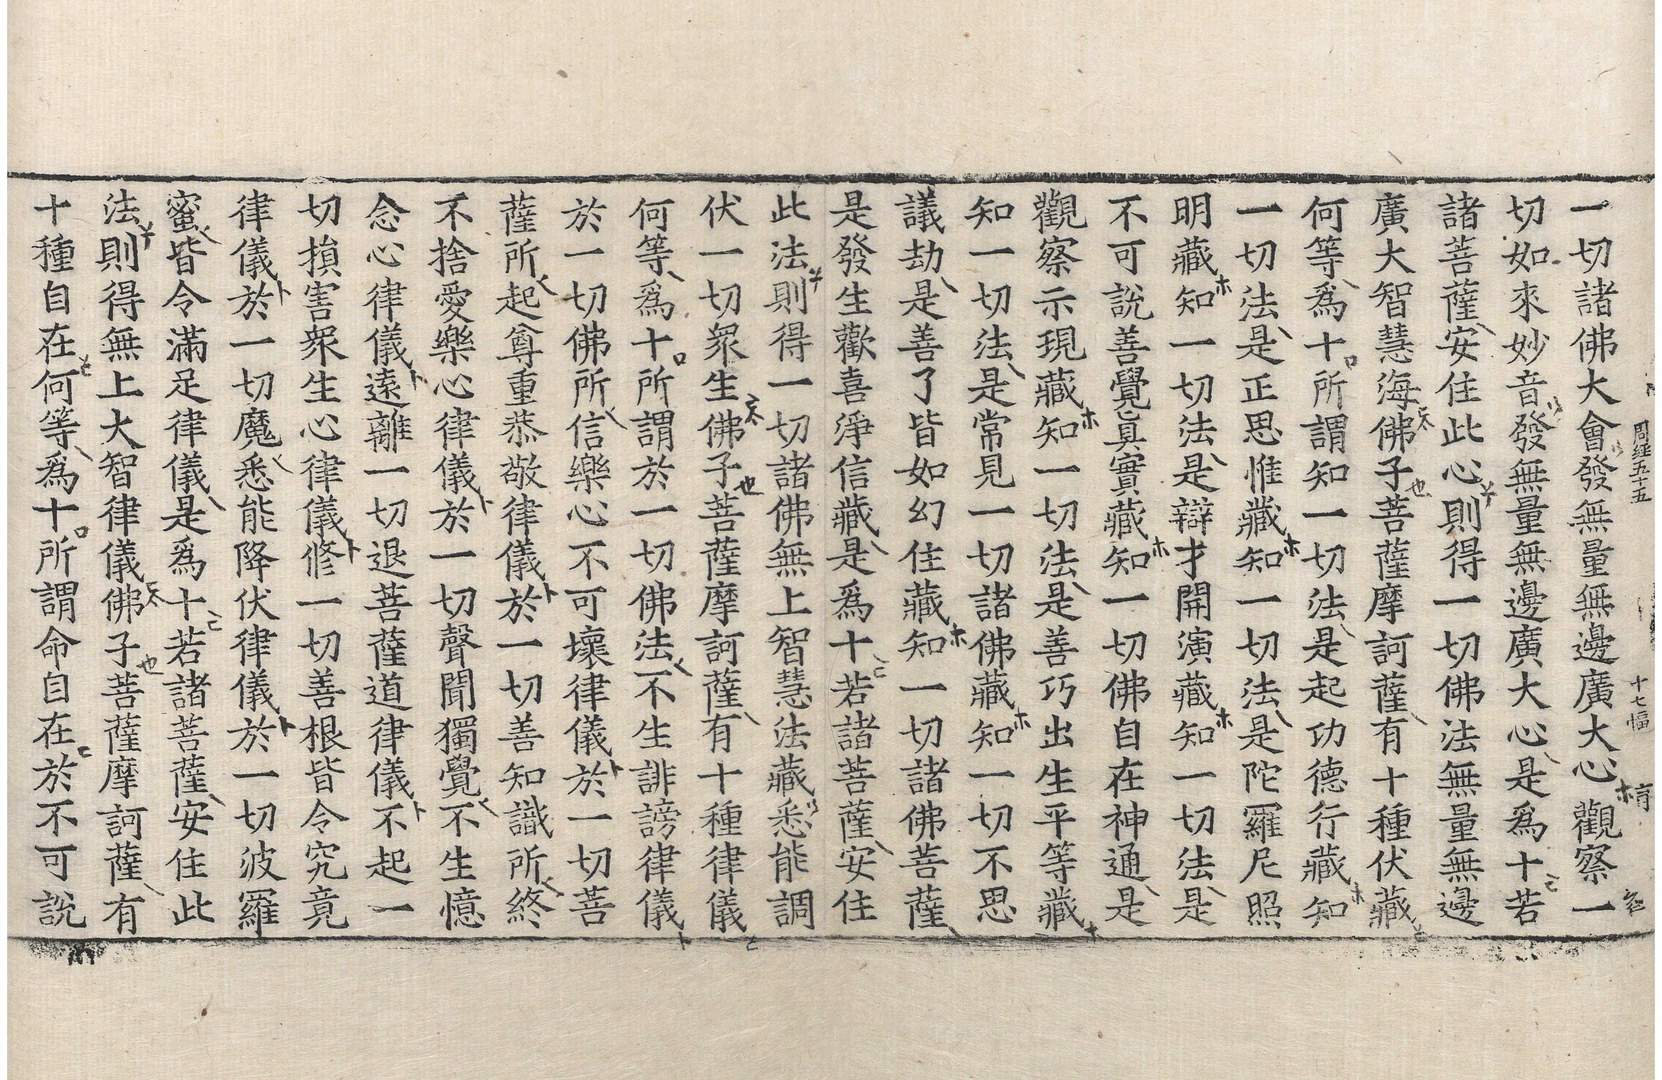 周經五十五 十七幅 育
一切諸佛大會發無量無邊廣大心觀察一
切如來妙音發無量無邊廣大心是爲十若
諸菩薩安住此心則得一切佛法無量無邊
廣大智慧海佛子菩薩摩訶薩有十種伏藏
何等爲十所謂知一切法是起功德行藏知
一切法是正思惟藏知一切法是陀羅尼照
明藏知一切法是辯才開演藏知一切法是
不可說善覺眞實藏知一切佛自在神通是
觀察示現藏知一切法是善巧出生平等藏
知一切法是常見一切諸佛藏知一切不思
議劫是善了皆如幻住藏知一切諸佛菩薩
是發生歡喜淨信藏是爲十若諸菩薩安住
此法則得一切諸佛無上智慧法藏悉能調
伏一切衆生佛子菩薩摩訶薩有十種律儀
何等爲十所謂於一切佛法不生誹謗律儀
於一切佛所信樂心不可壞律儀於一切菩
薩所起尊重恭敬律儀於一切善知識所終
不捨愛樂心律儀於一切聲聞獨覺不生憶
念心律儀遠離一切退菩薩道律儀不起一
切損害衆生心律儀修一切善根皆令究竟
律儀於一切魔悉能降伏律儀於一切波羅
蜜皆令滿足律儀是爲十若諸菩薩安住此
法則得無上大智律儀佛子菩薩摩訶薩有
十種自在何等爲十所謂命自在於不可說